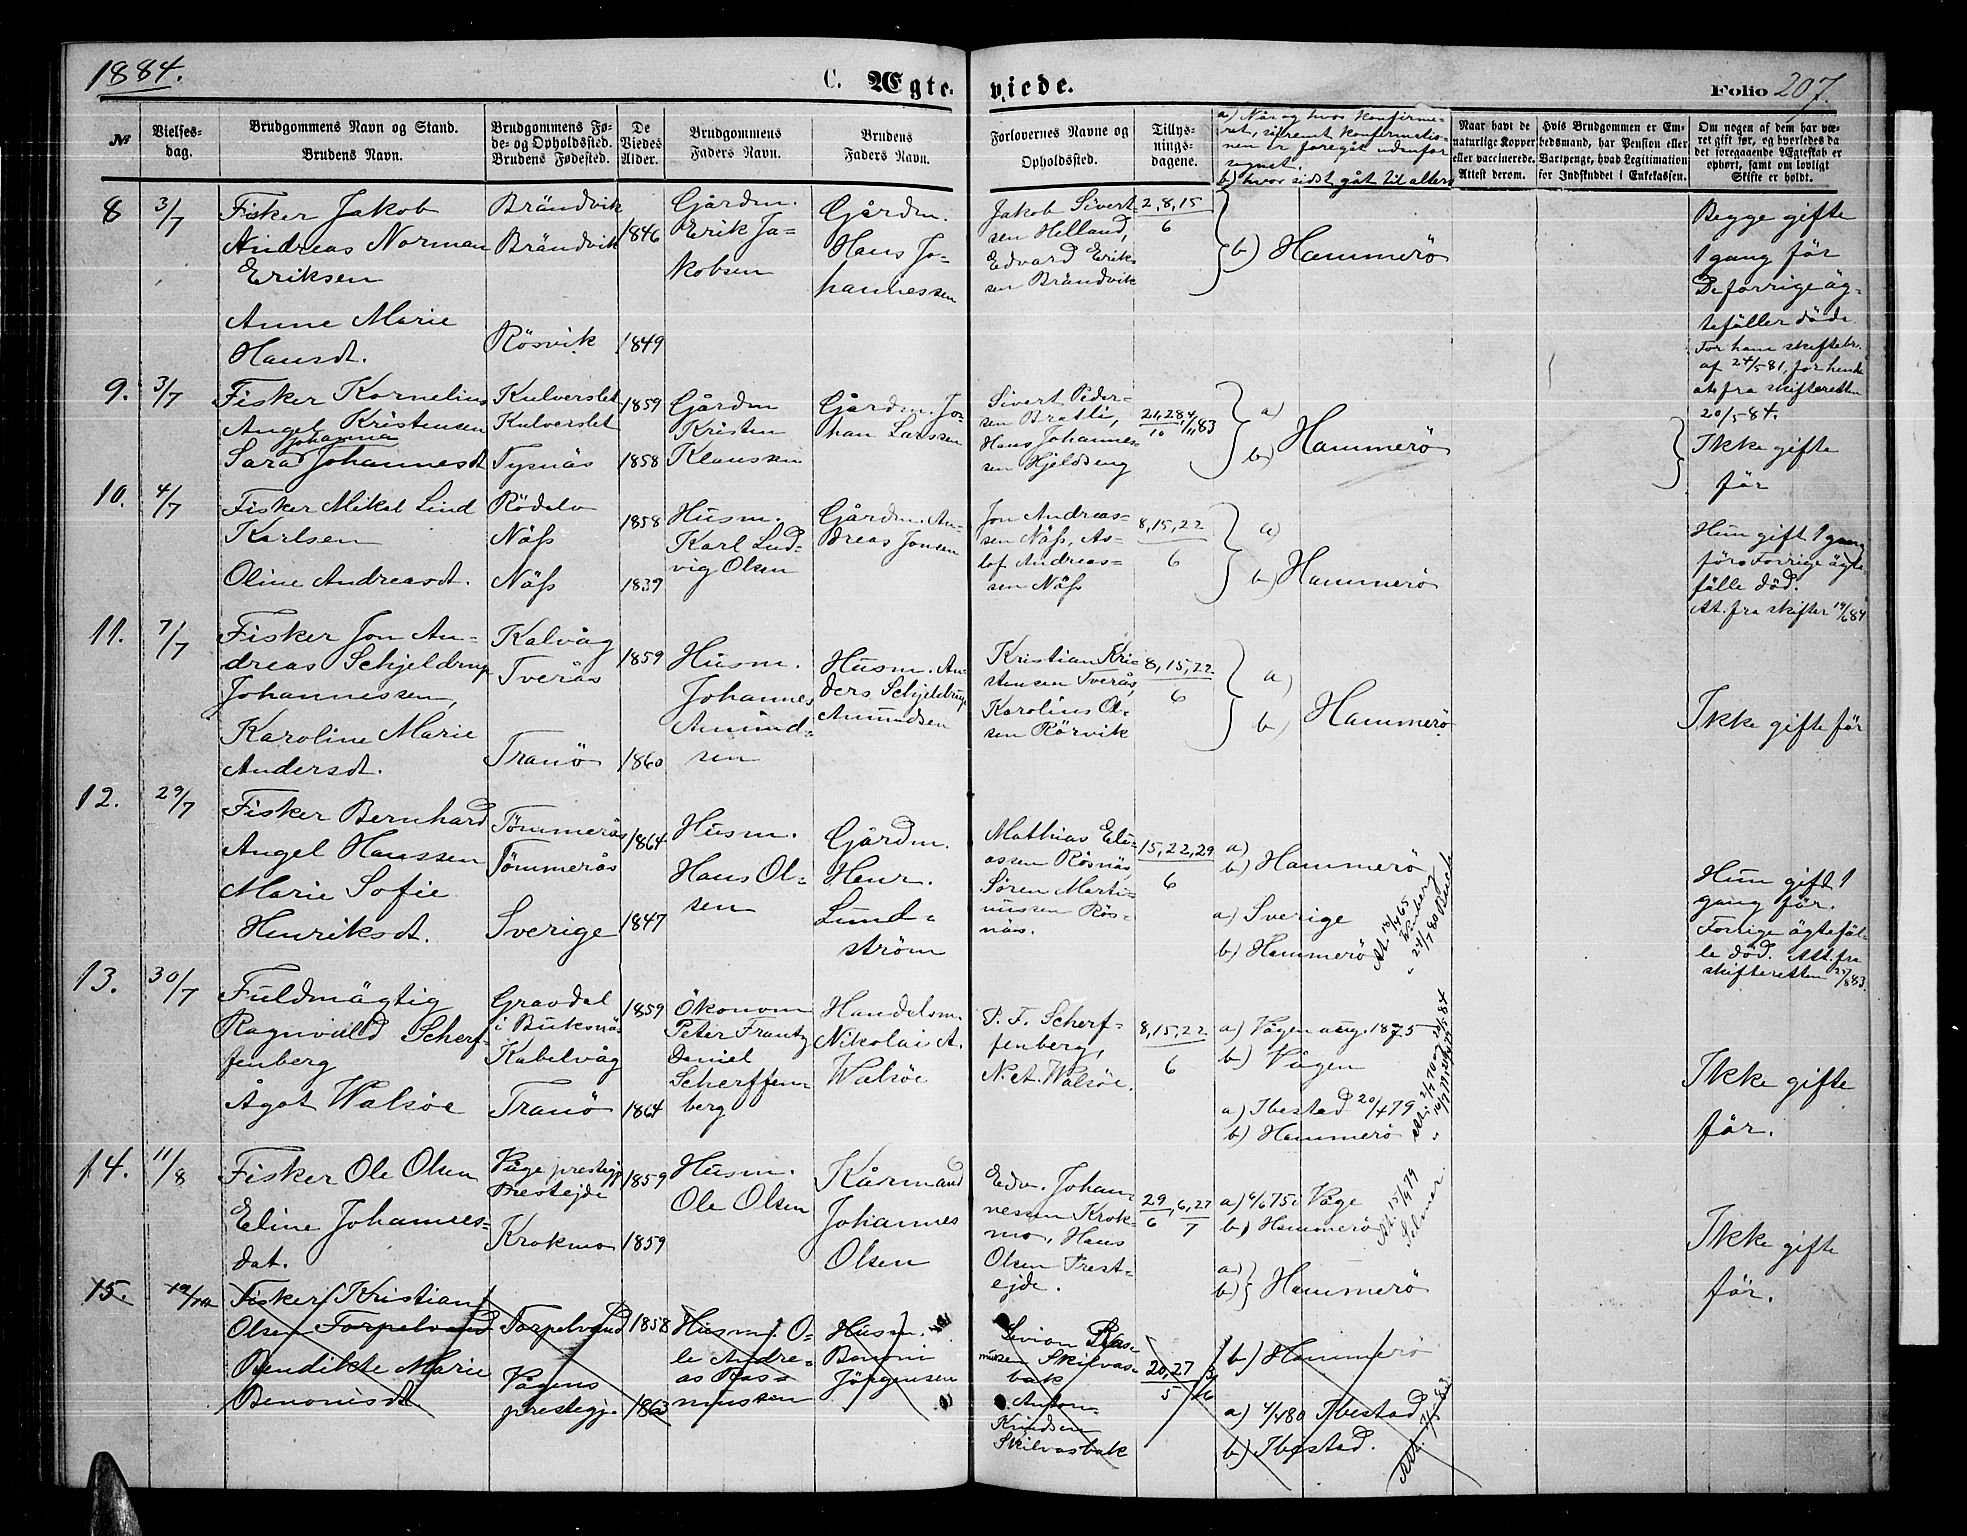 1884.
C. Ægte-
viede.
Folio 207.
№
Vielses-
dag.
Brudgommens Navn og Stand.
Brudens Navn.
Brudgommens Fø-
de- og Opholdssted.
Brudens Fødested.
De
Viedes
Alder.
Brudgommens
Faders Navn.
Brudens
Faders Navn.
Forlovernes Navne og
Opholdssted.
Tillys-
nings-
dagene.
a) Når og hvor konfirme-
ret, såfremt konfirmatio-
nen er foregåt udenfor
sognet.
b) hvor sidst gåt til alters
Naar havt de
naturlige Kopper
eller vaccinerede.
Attest derom.
Hvis Brudgommen er Em-
bedsmand, har Pension eller
Vartpenge, hvad Legitimation
for Indskuddet i Enkekassen.
Om nogen af dem har væ-
ret gift før, og hvorledes da
det foregaaende Ægteskab er
ophørt, samt om lovligt
Skifte er holdt.
8
3/7
Fisker Jakob
Andreas Norman
Eriksen
Anne Marie
Hansdt.
Brändvik
Brändvik
Rösvik
1846
1849
Gårdm.
Erik Ja-
kobsen
Gårdm.
Hans Jo-
hannessen
Jakob Sivert-
sen Helland,
Edvard Erik-
sen Brändvik
2, 8, 15
6
b) Hammerö
Begge gifte
1 gang för
De forrige äg-
tefäller döde
For ham skiftebr.
af 24/5 81, for hende
at. fra skifteretten
20/5 84.
9.
3/7
Fisker Kornelius
Angel Kristensen
Johanna
Sara Johannesdt
Kulverslet
Kulverslet
Tysnäs
1859
1858
Gårdm
Kristen
Klaussen
Gårdm. Jo-
han Larssen
Sivert Peder-
sen Bratli,
Hans Johannes-
sen Hjeldseng
21, 28 4/11 83
10
a)
b) Hammerö
Ikke gifte
för
10.
4/7
Fisker Mikal Lind
Karlsen
Oline Andreasdt.
Rödelv
Näss
Näss
1858
1839
Husm.
Karl Lud-
vig Olsen
Gårdm. An-
dreas Jonsen
Jon Andreas-
sen Näss, As-
lof Andreas-
sen Näss
8, 15, 22
6
a)
b) Hammerö
Hun gift 1 gang
för. Forrige ägte-
fälle död.
At. fra skifter 19/6 84
11.
7/7
Fisker Jon An-
dreas Schjeldrup
Johannessen,
Karoline Marie
Andersdt.
Kalvåg
Tverås
Tranö
1859
1860
Husm.
Johannes
Amund-
sen
Husm. An-
ders Schjeldrup
Amundsen
Kristian Kri-
stensen Tverås,
Karolius Ol-
sen Rörvik
8, 15, 22
6
a)
b) Hammerö
Ikke gifte för
12.
29/7
Fisker Bernhard
Angel Hanssen
Marie Sofie
Henriksdt.
Tömmerås
Tömmerås
Sverige
1864
1847
Husm.
Hans Ol-
sen
Gårdm.
Henr.
Lund-
ström
Mathias Eli-
assen Rösnäs,
Sören Marti-
nussen Rös-
näs.
15, 22, 29
6
a)
b) Hammerö
a) Sverige
b) Hammerö
Hun gift 1
gang för.
Forrige ägtefäl-
le död. Att. fra
skifteretten
13.
30/7
Fuldmägtig
Ragnvald Scherf-
fenberg
Ågot Walsöe
Gravdal
i Buksnäs
Kabelvåg
Tranö
1859
1864
Ökonom
Peter Frantz
Daniel
Scherffen-
berg
Handelsm.
Nikolai A.
Walsöe
P. F. Scherf-
fenberg,
N. A. Walsöe.
8, 15, 22
6
a) Vågen aug. 1875
b) Vågen
a) Ibestad 20/4 79
b) Hammerö
Ikke gifte
för.
14.
11/8
Fisker Ole Olsen
Eline Johannes-
dat.
Våge prestegj
Prestejde
Krokmo
1859
1859
Husm.
Ole Olsen
Kårmand
Johannes
Olsen
Edv. Johan-
nessen Krok-
mo, Hans
Olsen Prest-
ejde.
29, 6, 27
6 7
a) 4/6 75 i Våge
b) Hammerö
At. 15/9 79
Selmer.
a)
b) Hammerö
Ikke gifte
för.
15.
Fisker Kristian
Olsen Torpelvand
Bendikte Marie
Benonisdt
Torpelvand
Vågens
prestegj.
1858
1863
Husm. O-
le Andre-
as Ras-
mussen
Husm.
Benoni
Jörgensen
Sivion Ras-
mussen Skilvas-
bak
Anton
Knudsen
Skilvasbak
20, 27
5
b) Hammerö
a) 4/4 80 Ibestad
b) Ibestad.